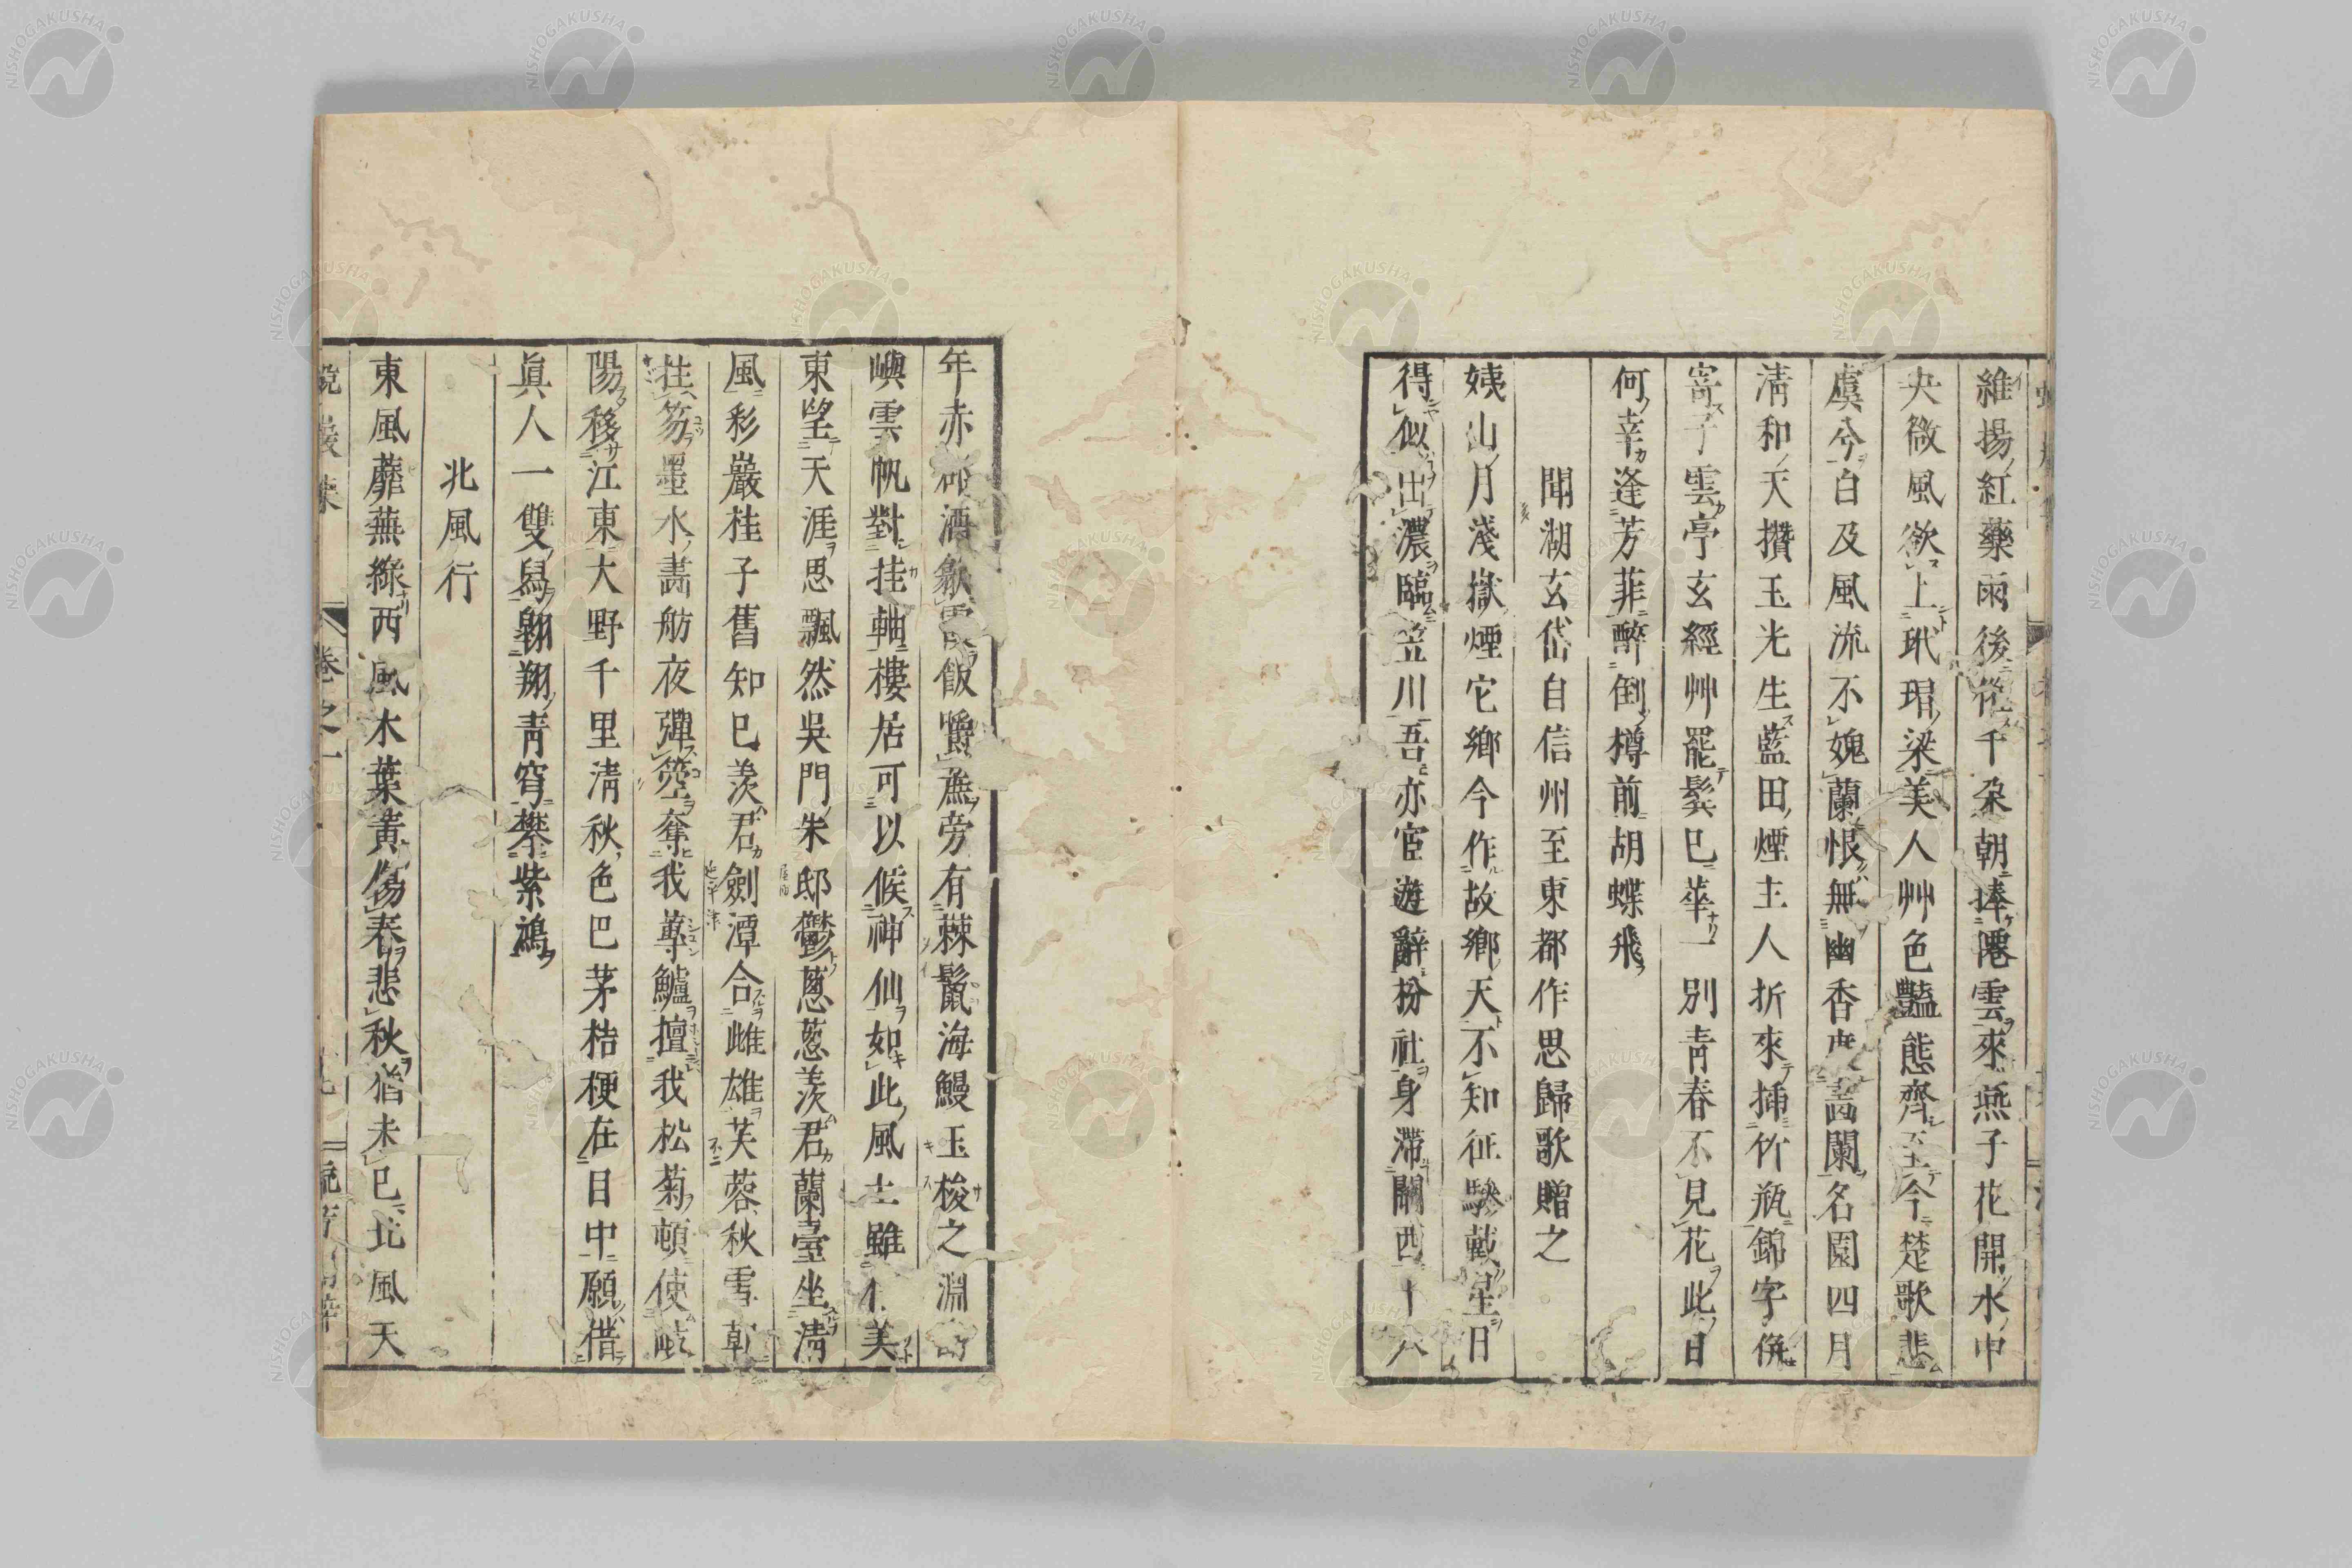 維揚紅藥雨後花千朶朝捧港雲來燕子花開水中
央微風欲上玳瑁梁美人艸色豔態齊至今楚歌悲
虞兮白及風流不媿蘭恨無幽香 畵闌名園四月
淸和天攢玉光生藍田煙主人折來揷竹甁錦字倂
寄子雲亭玄經艸罷鬂已華一別靑春不見花此日
何幸逢芳菲醉倒樽前胡蝶飛
聞湖玄岱自信州至東都作思歸歌贈之
姨山月淺嶽煙它鄕今作故鄕天不知征驂戴星日
得似出濃臨笠川吾亦宦遊辭枌社身滯關西十六
年赤 酒歠 飯爨 旁有棘鬛海鰻玉梭之淵
嶼雲帆對挂軸樓居可以候神仙如此風土雖 美
東望天涯思飄然吳門朱邸鬱葱葱羨君蘭臺坐淸
風彩巖桂子舊知已羨君劍潭合雌雄芙蓉秋雪
拄笏墨水畵舫夜彈箜奪我蓴鱸擅我松菊頓使
陽移江東大野千里淸秋色巴茅桔梗在目中願借
眞人一雙舃翺翔靑穹攀紫鴻
北風行
東風蘼蕪綠西風木葉黃傷春悲秋猶未已北風天
卷之一